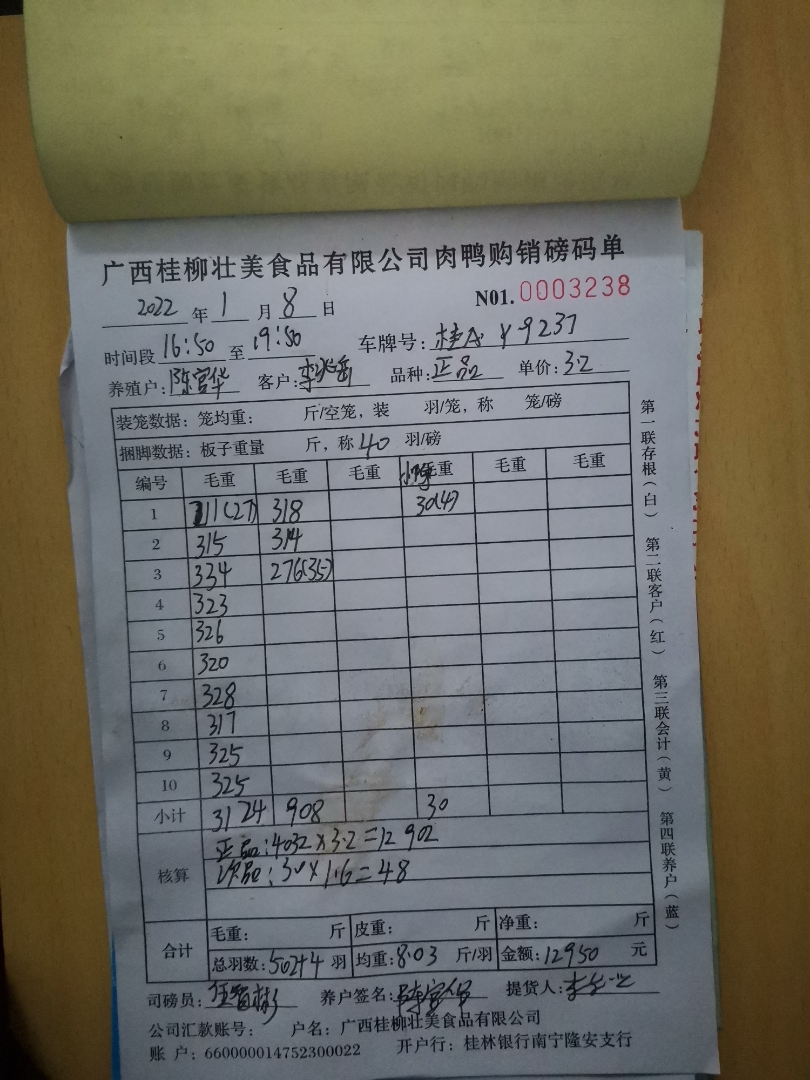 广西桂柳壮美食品有限公司肉鸭购销磅码单
2022 年 1 月 8 日 N01. 0003238
时间段 16:50 至 19:50 车牌号: 桂A Y9237
养殖户: 陈官华 客户: 品种: 正品 单价: 3.2
装笼数据: 笼均重: 斤/空笼, 装 羽/笼, 称 笼/磅
捆脚数据: 板子重量 斤, 称 40 羽/磅
编号 毛重 毛重 毛重 毛重 毛重 毛重
1 211(27) 318 30(4)
2 315 314
3 334 276(35)
4 323
5 326
6 320
7 328
8 317
9 325
10 325
小计 3124 908 30
核算
正品: 4032×3.2=12902
次品: 30×1.6=48
合计
毛重: 斤 皮重: 斤 净重: 斤
总羽数: 502+4 羽 均重: 8.03 斤/羽 金额: 12950 元
司磅员: 养户签名: 提货人:
公司汇款账号: 户名: 广西桂柳壮美食品有限公司
账 户: 660000014752300022 开户行: 桂林银行南宁隆安支行
第一联存根(白) 第二联客户(红) 第三联会计(黄) 第四联养户(蓝)